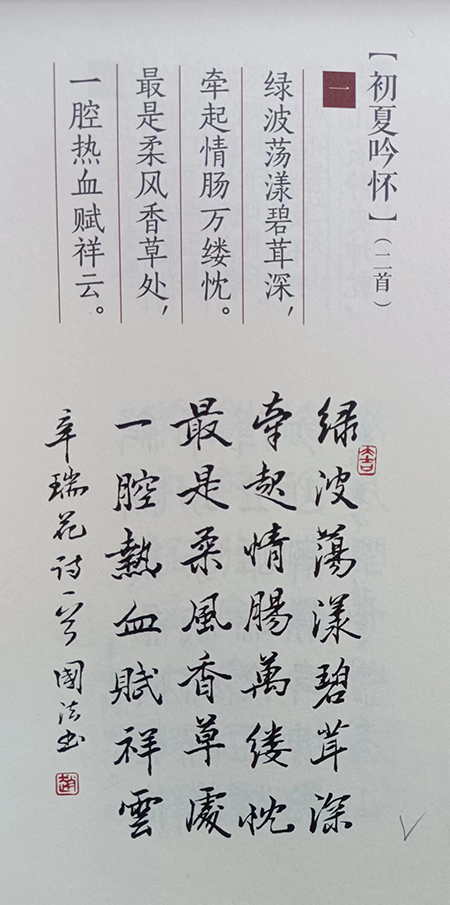 【初夏吟怀】（二首）
一
绿波荡漾碧茸深，
牵起情肠万缕忱。
最是柔风香草处，
一腔热血赋祥云。
绿波蕩漾碧茸深
牵起情腸萬缕忱
最是柔風香草處
一腔熱血賦祥雲
辛瑞花诗一首國法书
大吉
趙